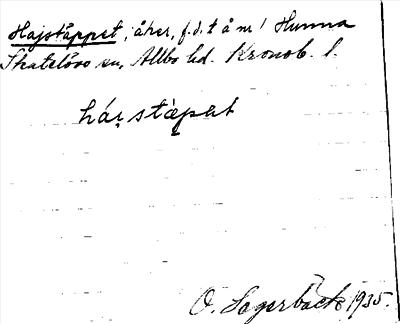 Hajstäppet, åker, f.d. t å m! Hunna
Skatelövs sn, Allbo hd. Kronob. l.
hárstäpət
O. Lagerbäck 1935.